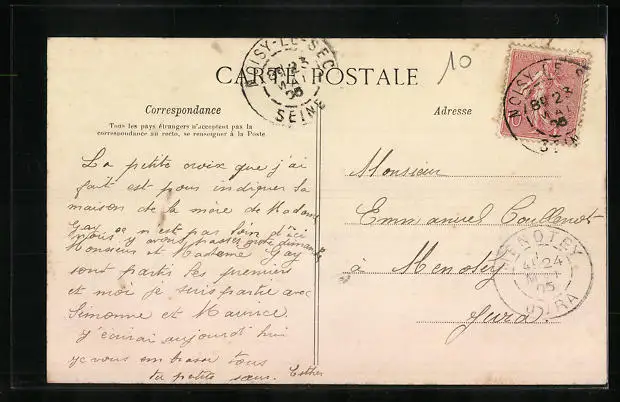 CARTE POSTALE
10
Correspondance
Tous les pays étrangers n'acceptent pas la
correspondance au recto, se renseigner à la Poste.
Adresse
NOISY-LE-SEC
23
MAI
05
SEINE
NOISY-LE-S
8E 23
MAI
05
SEIN
La petite croix que j'ai
fait est pour indiquer la
maison de la mère de Madame
Gay ce n'est pas loin d'ici
nous y avons passer notre dimanche
Monsieur et Madame Gay
sont partis les premiers
et moi je suis partie avec
Simonne et Maurice.
j'écrirai aujourd'hui
je vous embrasse tous
ta petite sœur. Esther
Monsieur
Emmanuel Coullenot
à Menotey
Jura.
MENOTEY
24
05
JURA